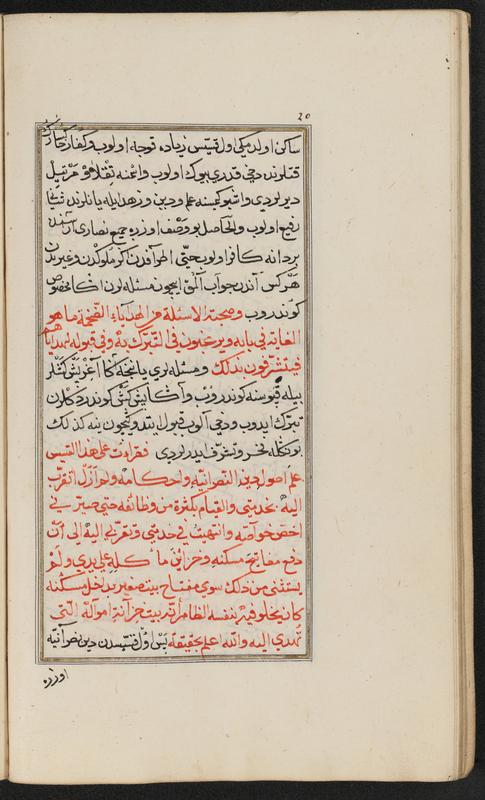 ٢٥
ساكن اولدیکی اول قسیس زیاده توجه اولوب و کفار
قتلرنده دخی قدری بیوك اولوب واتمنه نقلاو مرتیل
دیرلردی و اشبو کیمسه علم و دین و زهد ایله یانلرنده
رفیع اولوب والحاصل بو وصف اوزره جمیع نصاری
بردانه کافر اولوب حتی اطرافدن کرملوکدن وغیریدن
هر کس آندن جواب المق ایچون مسئله لرن اکا مخصوص
کوندروب وصحبة الاسئلة من الهدایاء الضخمة ما هو
الغایة فی بابه ویرغبون فی التبرك به وفی قبوله لهدایاهم
فیتشرفون بذلك ومسئله لری یاننجه اکا
بیله قپوسنه کوندروب و اکا کوندردکلرن
تبرك ایدوب و دخی آلوب قبول ایتدوکیچون ینه کذلك
بونکله فخر و تشرف ایدرلردی فقرأت علی هذا القسیس
علم اصول دین النصرانیة واحکامه ولم ازل اتقرب
الیه بخدمتی والقیام بکثرة من وظائفه حتی صیرنی
اخص خواصه وانتهیت فی خدمتی وتقربی الیه الی أن
دفع مفاتیح مسکنه وخزائن مأکله علی یدی ولم
یستثنی من ذلك سوی مفتاح بیت صغیر بداخل مسکنه
کان یخلو فیه بنفسه الظاهر أنه بیت خزانة امواله التی
تهدی الیه والله اعلم بحقیقته پس اول قسیسدن دین نصرانیه
اوزره